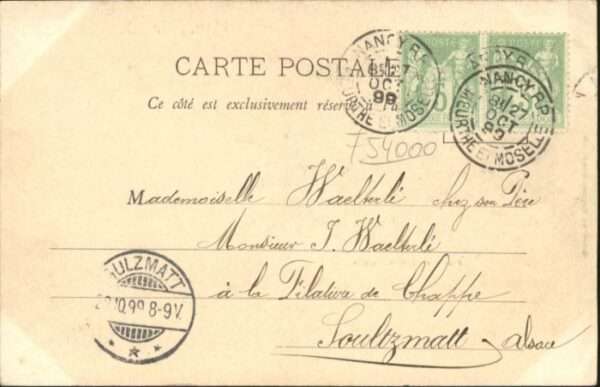 CARTE POSTALE
Ce côté est exclusivement réservé à
NANCY R.P.
27
OCT
99
MEURTHE ET MOSELLE
NANCY R.P.
27
OCT
99
MEURTHE ET MOSELLE
54000
Mademoiselle Waelterlé chez son Père
Monsieur J. Waelterlé
à la Filature de Chappe
Soultzmatt Alsace
SULZMATT
10.99 8-9V.